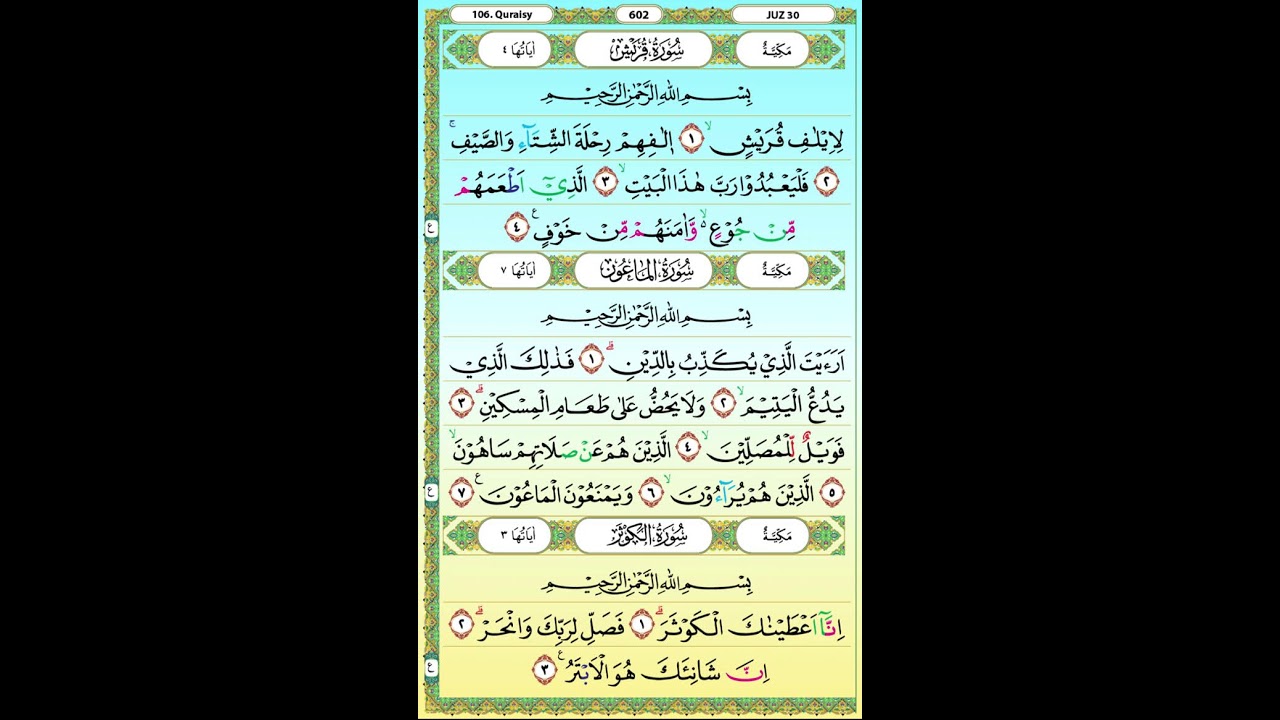 106. Quraisy 602 JUZ 30
مَكِّيَّةٌ سُوْرَةُ قُرَيْشٍ اٰيَاتُهَا ٤
بِسْمِ اللّٰهِ الرَّحْمٰنِ الرَّحِيْمِ
لِاِيْلٰفِ قُرَيْشٍۙ ١ اٖلٰفِهِمْ رِحْلَةَ الشِّتَاۤءِ وَالصَّيْفِۚ
٢ فَلْيَعْبُدُوْا رَبَّ هٰذَا الْبَيْتِۙ ٣ الَّذِيْٓ اَطْعَمَهُمْ
مِّنْ جُوْعٍ ەۙ وَّاٰمَنَهُمْ مِّنْ خَوْفٍ ࣖ ٤
ع
مَكِّيَّةٌ سُوْرَةُ الْمَاعُوْنِ اٰيَاتُهَا ٧
بِسْمِ اللّٰهِ الرَّحْمٰنِ الرَّحِيْمِ
اَرَءَيْتَ الَّذِيْ يُكَذِّبُ بِالدِّيْنِۗ ١ فَذٰلِكَ الَّذِيْ
يَدُعُّ الْيَتِيْمَۙ ٢ وَلَا يَحُضُّ عَلٰى طَعَامِ الْمِسْكِيْنِۗ ٣
فَوَيْلٌ لِّلْمُصَلِّيْنَۙ ٤ الَّذِيْنَ هُمْ عَنْ صَلَاتِهِمْ سَاهُوْنَۙ
٥ الَّذِيْنَ هُمْ يُرَاۤءُوْنَۙ ٦ وَيَمْنَعُوْنَ الْمَاعُوْنَ ࣖ ٧
ع
مَكِّيَّةٌ سُوْرَةُ الْكَوْثَرِ اٰيَاتُهَا ٣
بِسْمِ اللّٰهِ الرَّحْمٰنِ الرَّحِيْمِ
اِنَّآ اَعْطَيْنٰكَ الْكَوْثَرَۗ ١ فَصَلِّ لِرَبِّكَ وَانْحَرْۗ ٢
اِنَّ شَانِئَكَ هُوَ الْاَبْتَرُ ࣖ ٣
ع